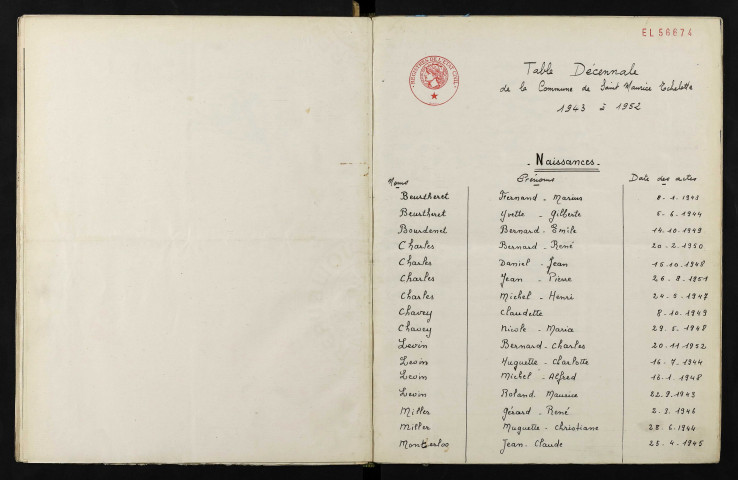 EL 56674
REGISTRES DE L'ETAT CIVIL
Table Décennale
de la Commune de Saint Maurice Echelotte
1943 à 1952
- Naissances -
Noms Prénoms Date des actes
Beurtheret Fernand - Marius 8-1-1943
Beurtheret Yvette - Gilberte 5-6-1944
Bourdenet Bernard - Emile 14-10-1949
Charles Bernard - René 20-2-1950
Charles Daniel - Jean 15-10-1948
Charles Jean - Pierre 26-8-1951
Charles Michel - Henri 24-5-1947
Chavey Claudette 8-10-1949
Chavey Nicole - Maria 29-5-1948
Levin Bernard - Charles 20-11-1952
Levin Huguette - Charlotte 16-7-1944
Levin Michel - Alfred 16-1-1948
Levin Roland Maurice 22-9-1943
Miller Gérard - René 2-3-1946
Miller Muguette - Christiane 28-6-1944
Monterlos Jean-Claude 25-4-1945